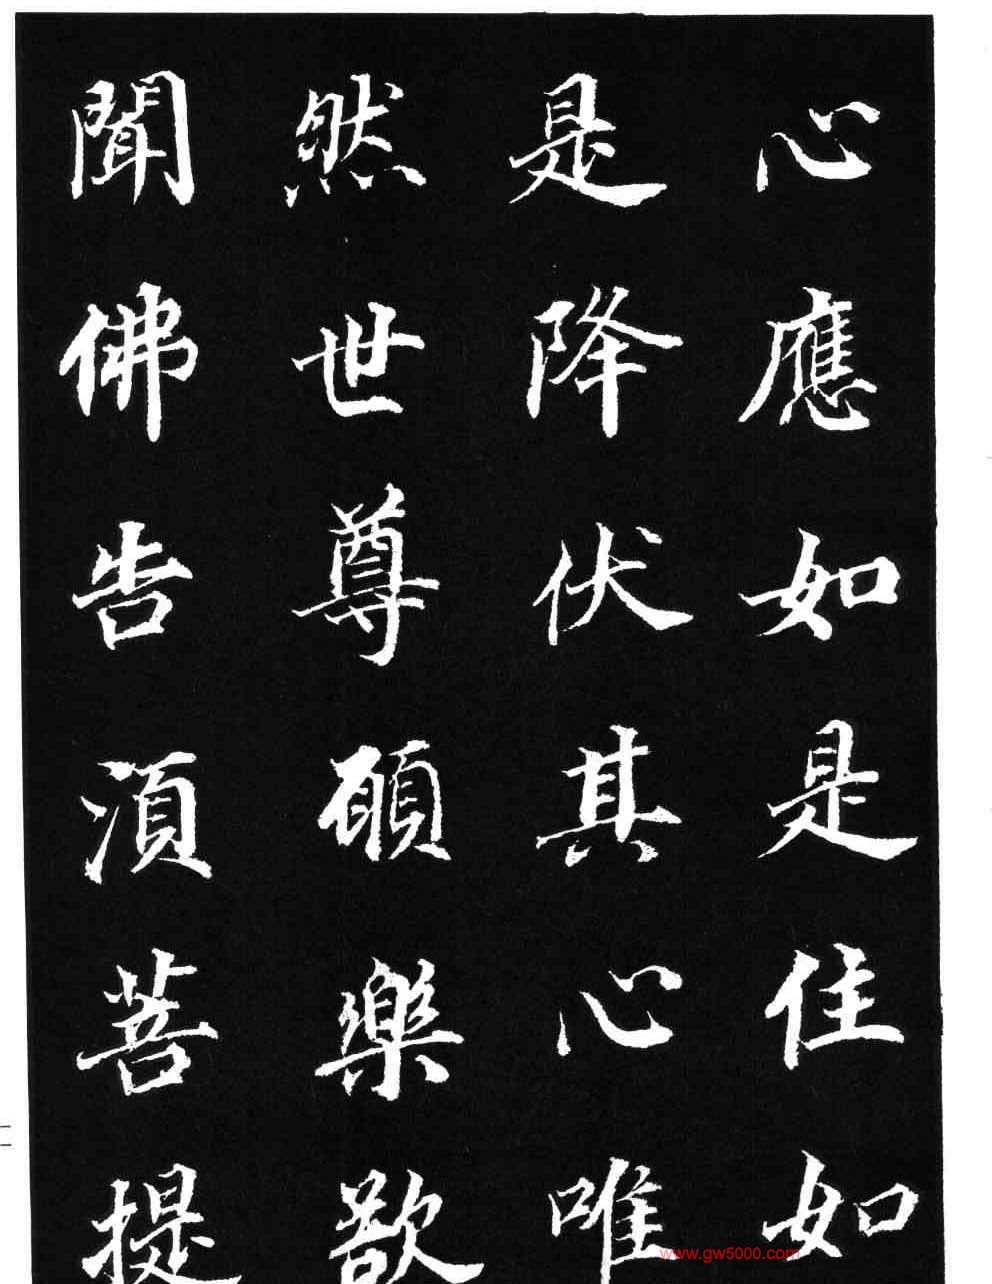 心應如是住如
是降伏其心唯
然世尊願樂欲
聞佛告須菩提
www.gw5000.com